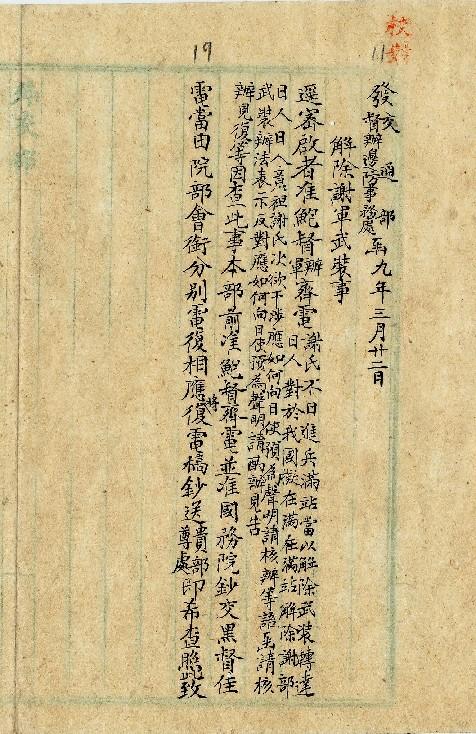 校對
11
19
發交通部
督辦邊防事務處函九年三月廿二日
解除謝軍武裝事
逕密啟者准鮑督辦
軍齊電謝氏不日進兵滿站當以解除武裝轉達
日人日人意袒謝氏決欲干涉應如何向日使預為聲明請核辦等語函請核
日人對於我國擬在滿在滿站解除謝部
武裝辦法表示反對應如何向日使預為聲明請酌辦見告
辦見復等因查此事本部前准鮑督齊電並准國務院鈔交黑督佳
電當由院部會銜分別電復相應將復電稿鈔送貴部
尊處即希查照此致